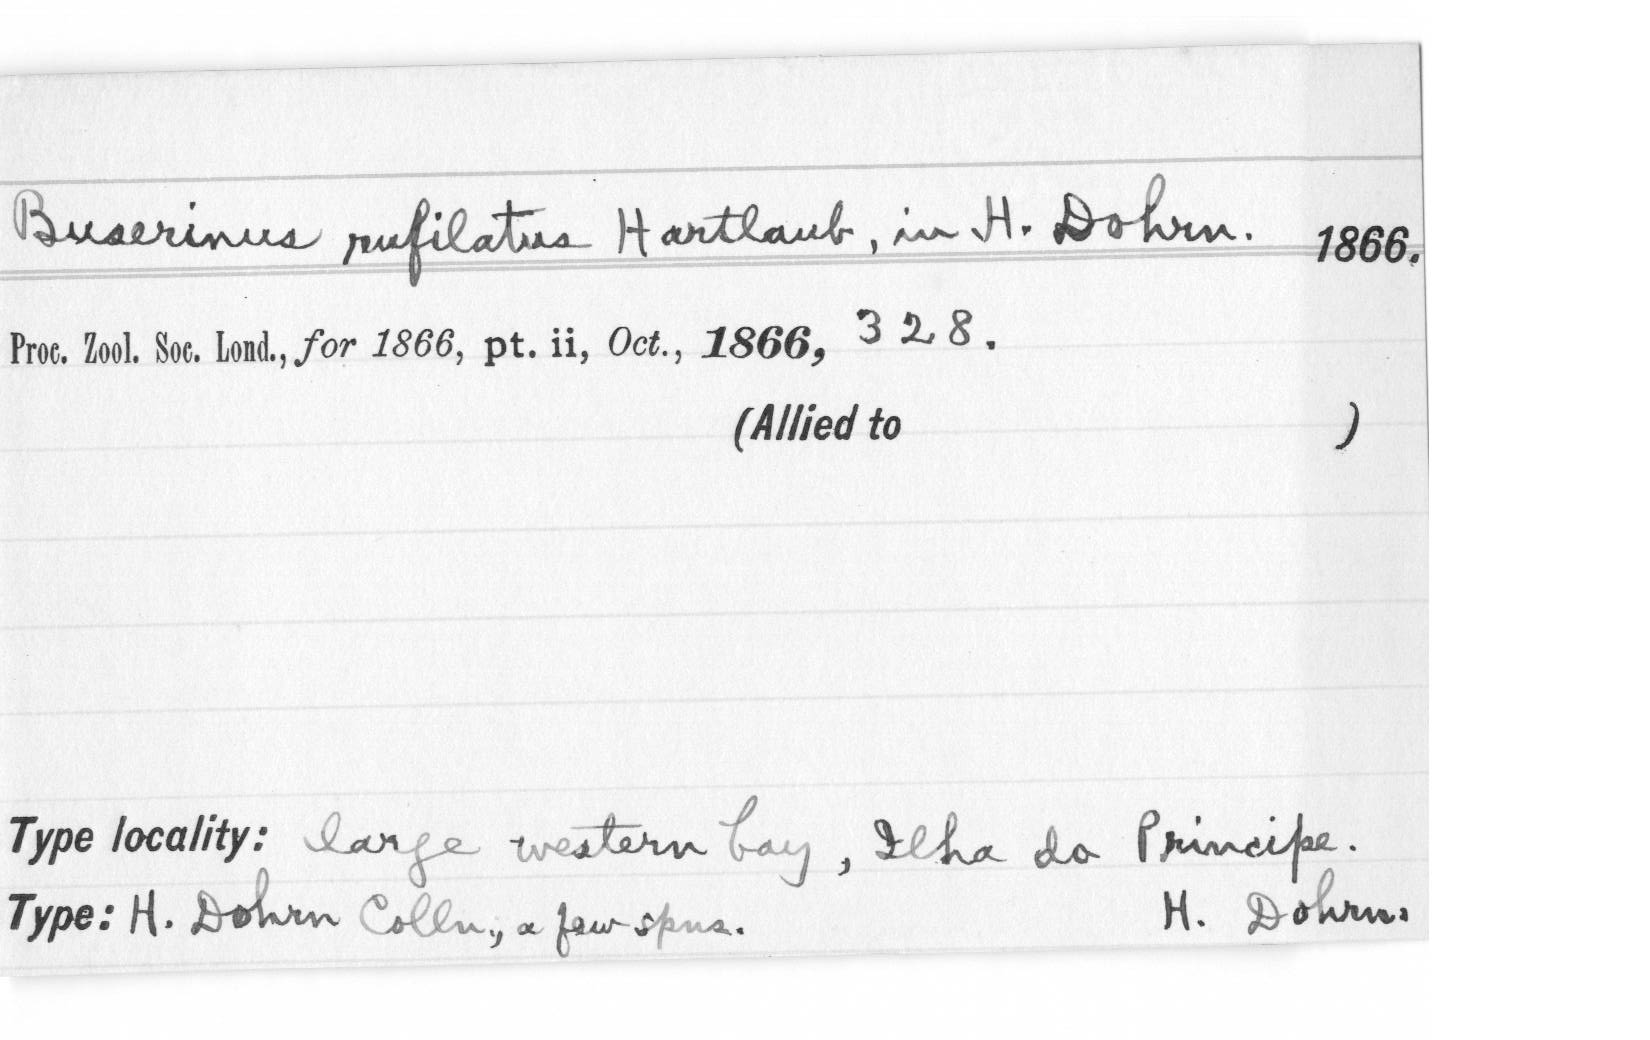 Buserinus rufilatus Hartlaub, in H. Dohrn. 1866.
Proc. Zool. Soc. Lond., for 1866, pt. ii, Oct., 1866, 328.
(Allied to )
Type locality: large western bay, Ilha do Principe.
Type: H. Dohrn Colln., a few spns. H. Dohrn.